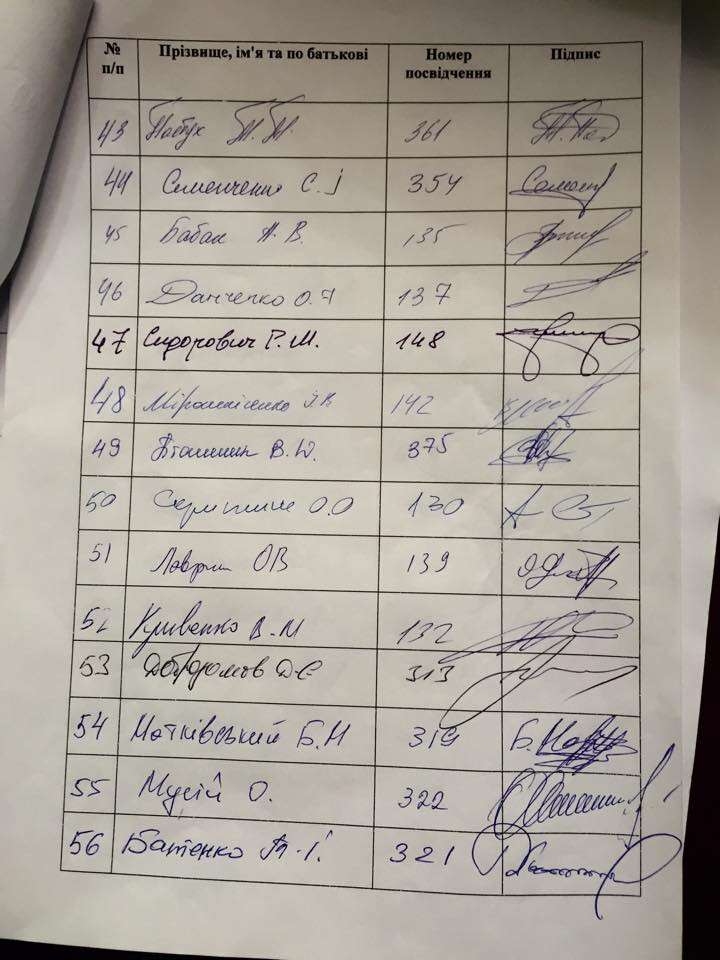 № п/п Прізвище, ім'я та по батькові Номер посвідчення Підпис
43 361
44 Семенченко С. І 354
45 Бабак А. В. 135
46 Данченко О. І 137
47 Сидорович Р. М. 148
48 Мірошніченко І. В 142
49 Пташник В. Ю. 375
50 О.О 130
51 Лаврик ОВ 139
52 Кривенко В. М 132
53 Добродомов Д Є 313
54 Матківський Б. М 319
55 Мусій О. 322
56 Батенко Т. І. 321